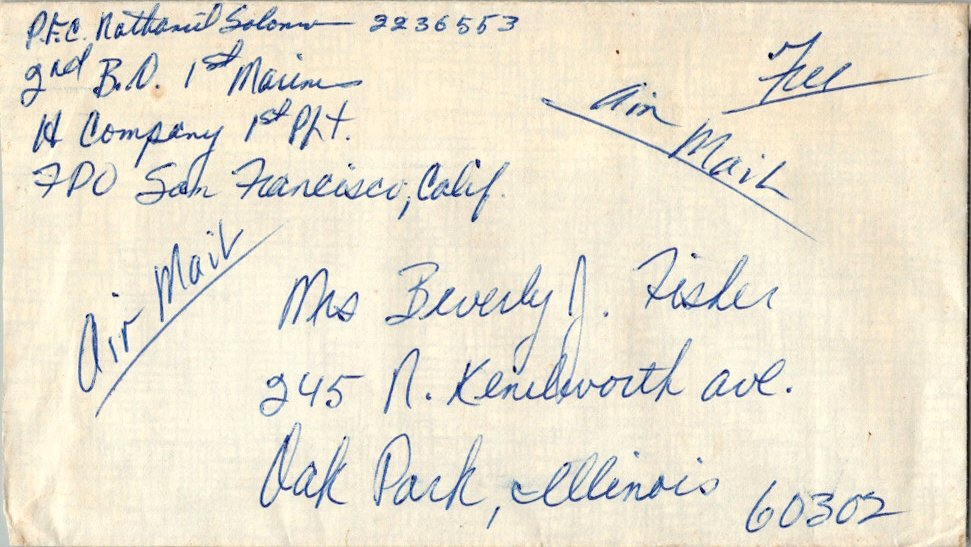 P.F.C. Nathaniel Solomon 2236553
2nd B.D. 1st Marines
H Company 1st Plt.
FPO San Francisco, Calif.
Free
Air Mail
Air Mail
Mrs Beverly J. Fisher
245 N. Kenilworth ave.
Oak Park, Illinois 60302